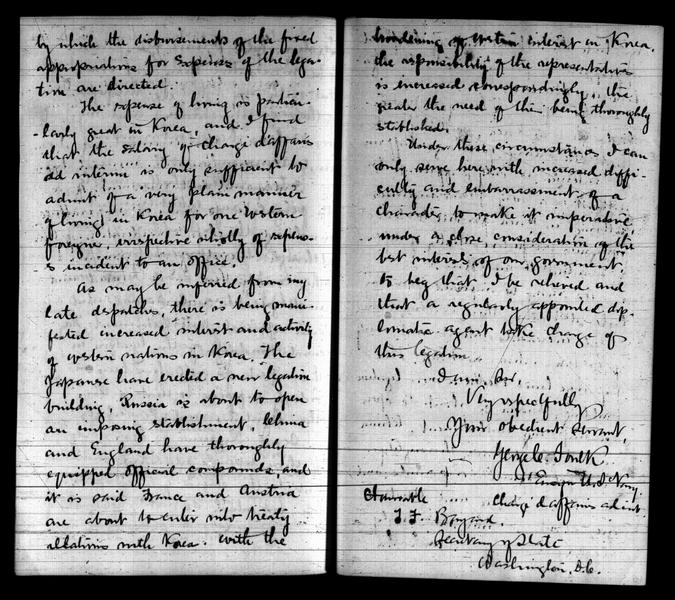 by which the disbursements of the fixed
appropriations for expenses of the lega-
tion are directed.
The expense of living is particu-
larly great in Korea, and I find
that the salary of chargé d'affaires
ad interim is only sufficient to
admit of a very plain manner
of living in Korea for one Western
foreigner, irrespective wholly of expens-
es incident to an office.
As may be inferred from my
late dispatches, there is being mani-
fested increased interest and activity
of western nations in Korea. The
Japanese have erected a new legation
building, Russia is about to open
an imposing establishment, China
and England have thoroughly
equipped official compounds, and
it is said France and Austria
are about to enter into treaty
relations with Korea. With the
broadening of Western interest in Korea,
the responsibility of the representatives
is increased correspondingly, the
greater the need of their being thoroughly
established.
Under these circumstances I can
only serve here with increased diffi-
culty and embarrassment of a
character to make it imperative,
under a close consideration of the
best interests of our government,
to beg that I be relieved and
that a regularly appointed dip-
lomatic agent take charge of
this legation.
I am, Sir,
Very respectfully
Your obedient servant,
George C. Foulk
Ensign U.S. Navy
Chargé d'affaires ad int.
Honorable
T. F. Bayard,
Secretary of State,
Washington, D.C.